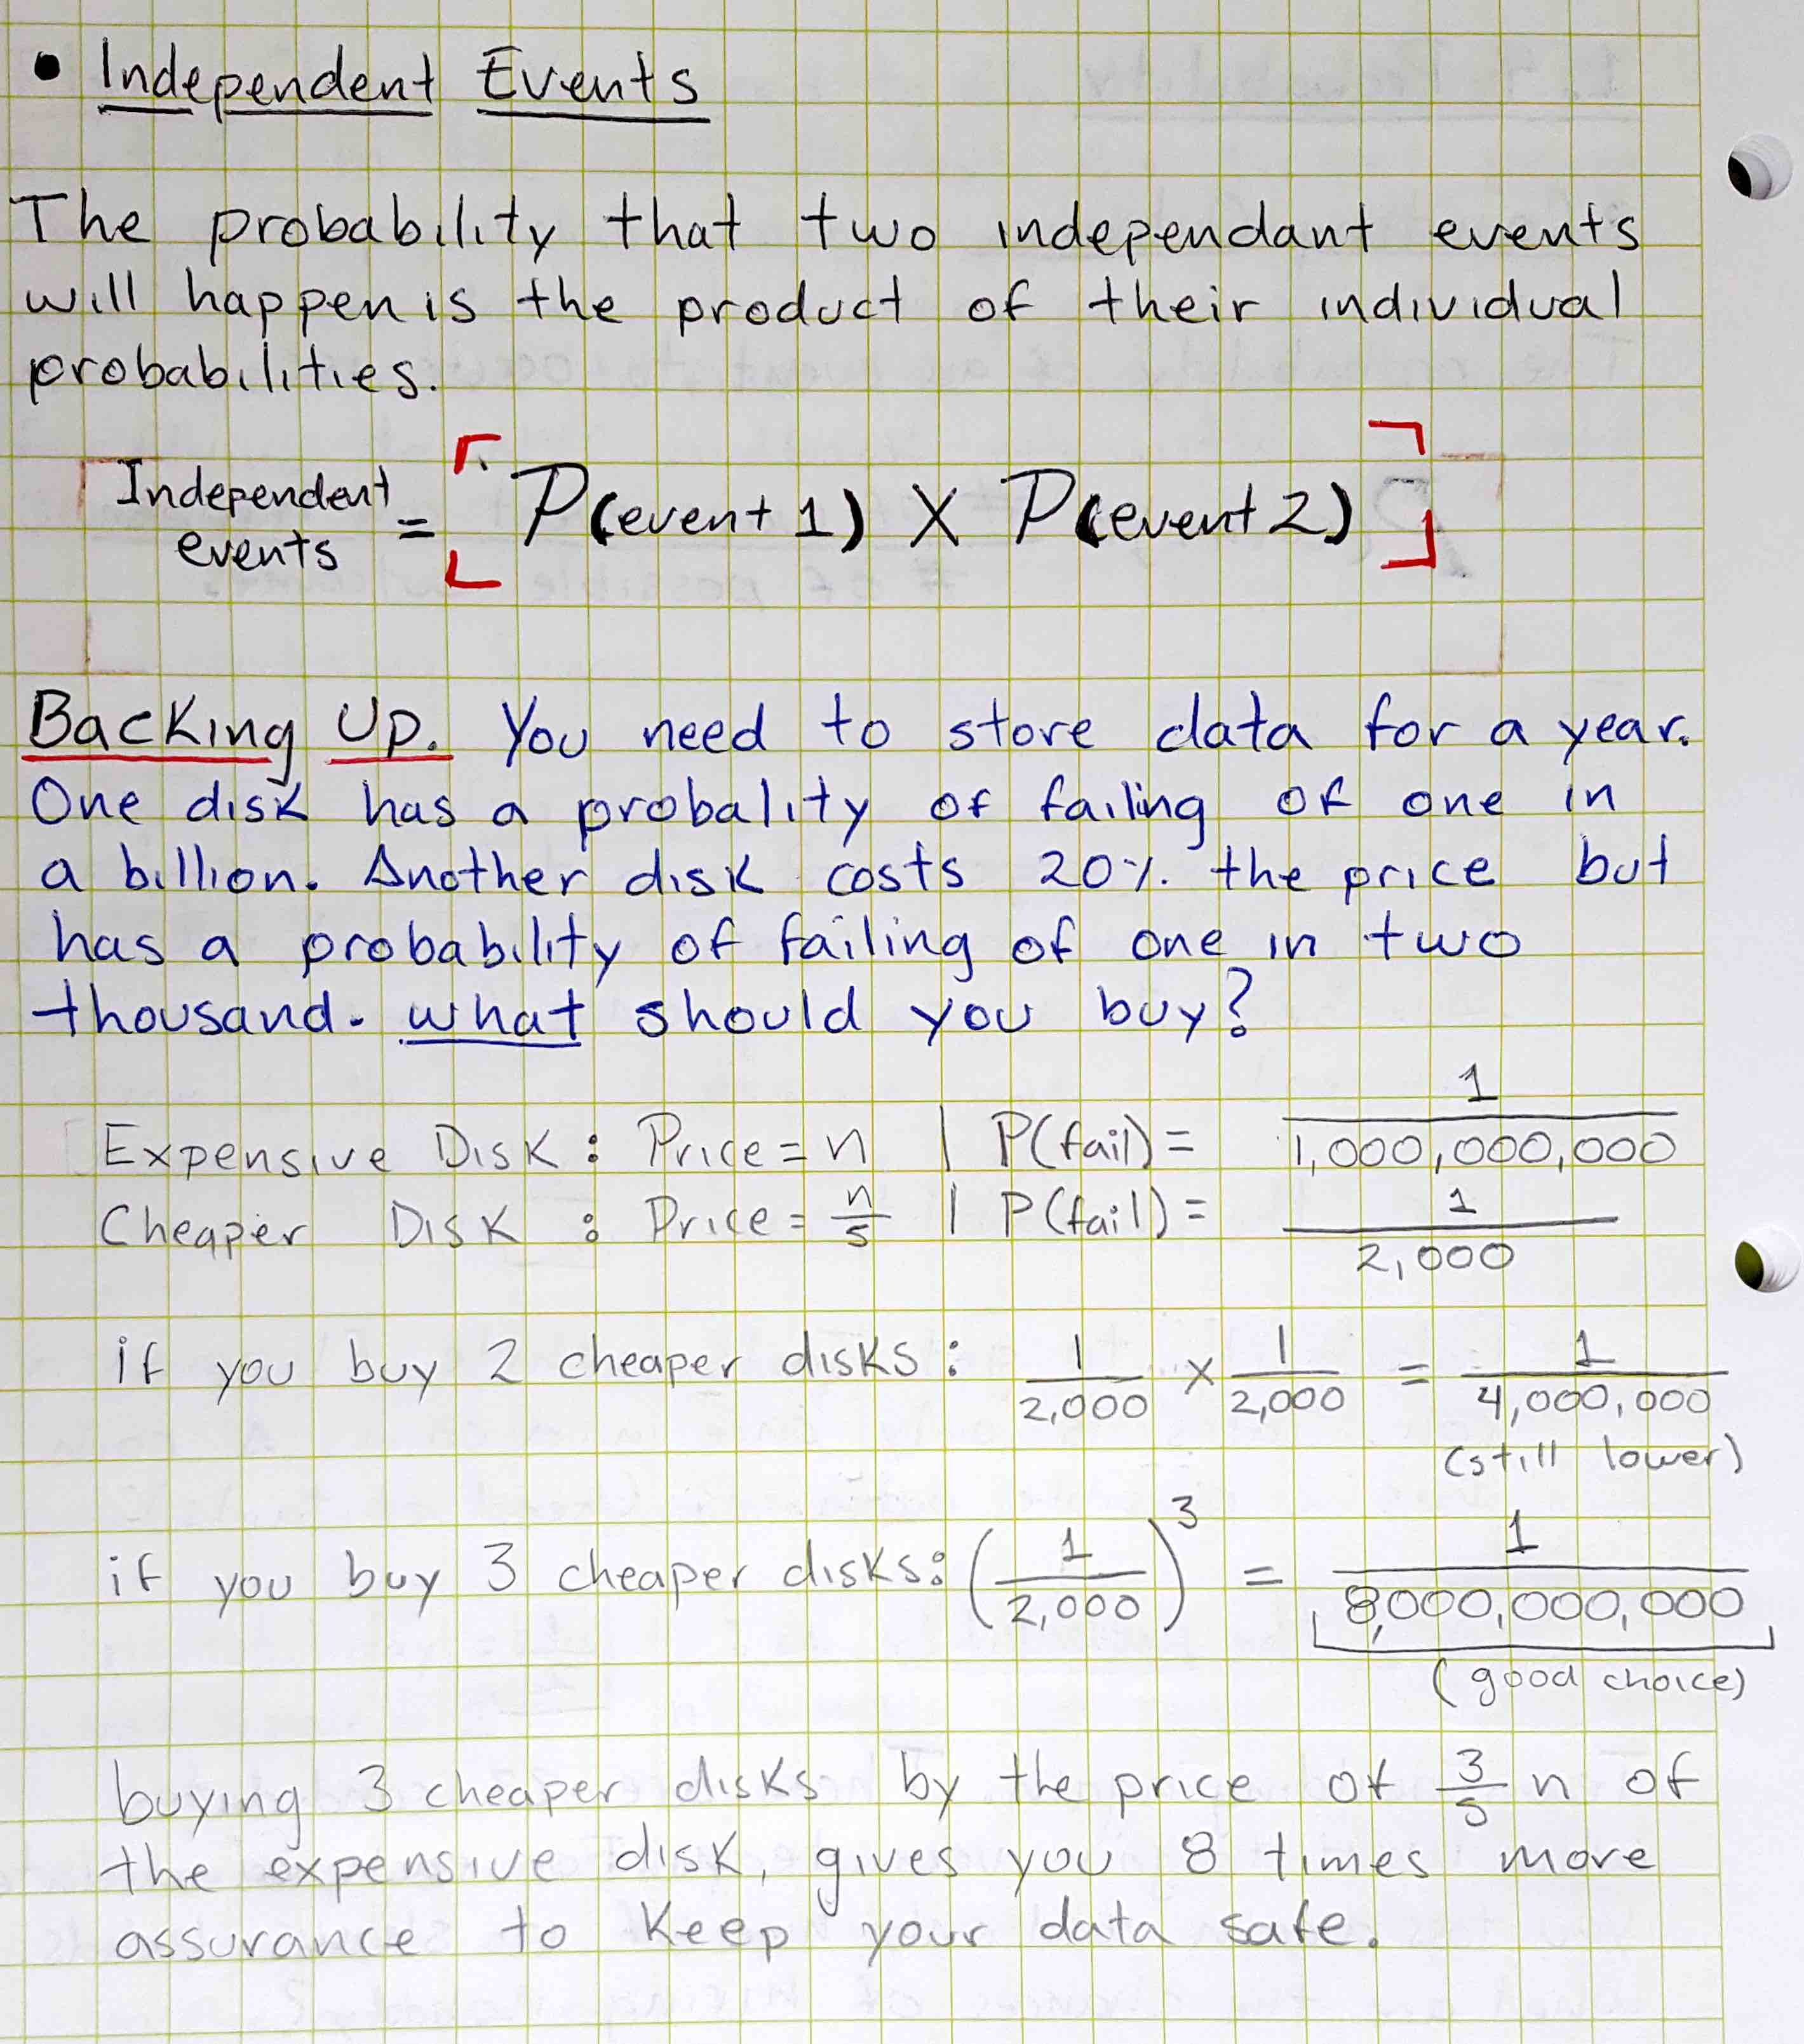 • Independent Events
The probability that two independant events
will happen is the product of their individual
probabilities.
Independent
events = P(event 1) X P(event 2)
Backing Up. You need to store data for a year.
One disk has a probality of failing of one in
a billion. Another disk costs 20% the price but
has a probability of failing of one in two
thousand. what should you buy?
Expensive Disk : Price = n | P(fail) = 1/1,000,000,000
Cheaper Disk : Price = n/5 | P(fail) = 1/2,000
if you buy 2 cheaper disks : 1/2,000 × 1/2,000 = 1/4,000,000
(still lower)
if you buy 3 cheaper disks: (1/2,000)^3 = 1/8,000,000,000
(good choice)
buying 3 cheaper disks by the price of 3/5 n of
the expensive disk, gives you 8 times more
assurance to keep your data safe.